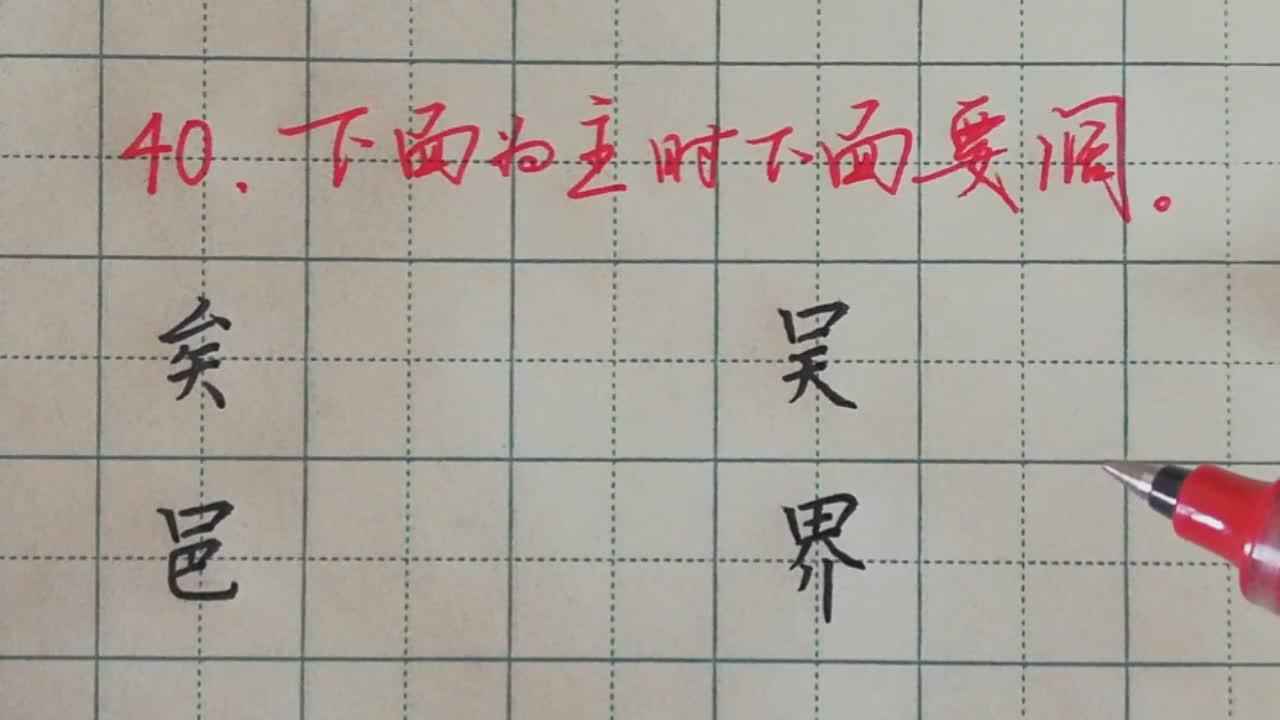 40、下面为主时下面要阔。
矣 吴
邑 界